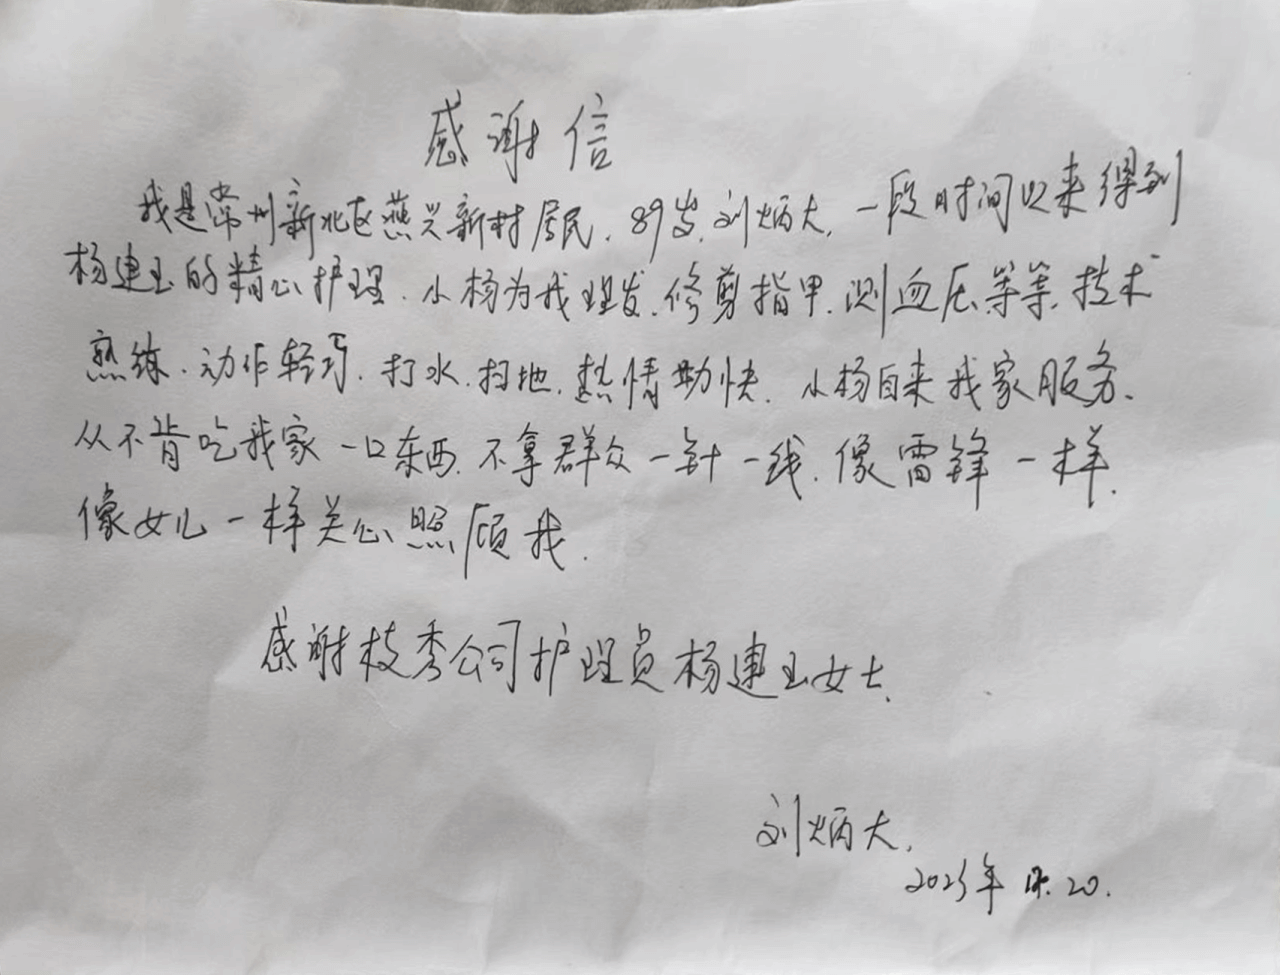 感谢信
我是常州新北区燕兴新村居民.89岁.刘炳大.一段时间以来得到
杨建玉的精心护理.小杨为我理发.修剪指甲.测血压.等等.技术
熟练.动作轻巧.打水.扫地.热情勤快.小杨自来我家服务.
从不肯吃我家一口东西.不拿群众一针一线.像雷锋一样.
像女儿一样关心照顾我.
感谢枝秀公司护理员杨建玉女士.
刘炳大.
2023年 20.